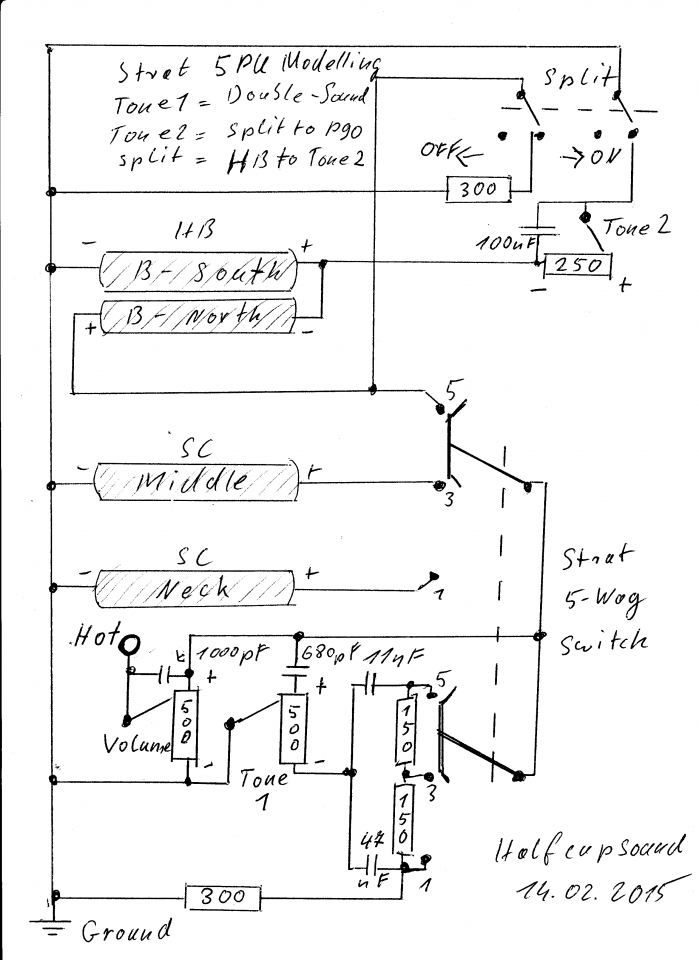 Strat 5PU Modelling
Tone1 = Double-Sound
Tone2 = Split to P90
Split = HB to Tone2
Split
OFF ← → ON
300
HB
- +
B-South
+ -
B-North
100nF
Tone2
250
- +
5
SC
- Middle +
3
SC
- Neck +
1
Strat
5-Way
Switch
Hot
1000pF
680pF
11nF
+
+
5
500
500
150
Volume
-
-
Tone
1
3
150
47
nF
1
300
Ground
Halfcupsound
14.02.2015